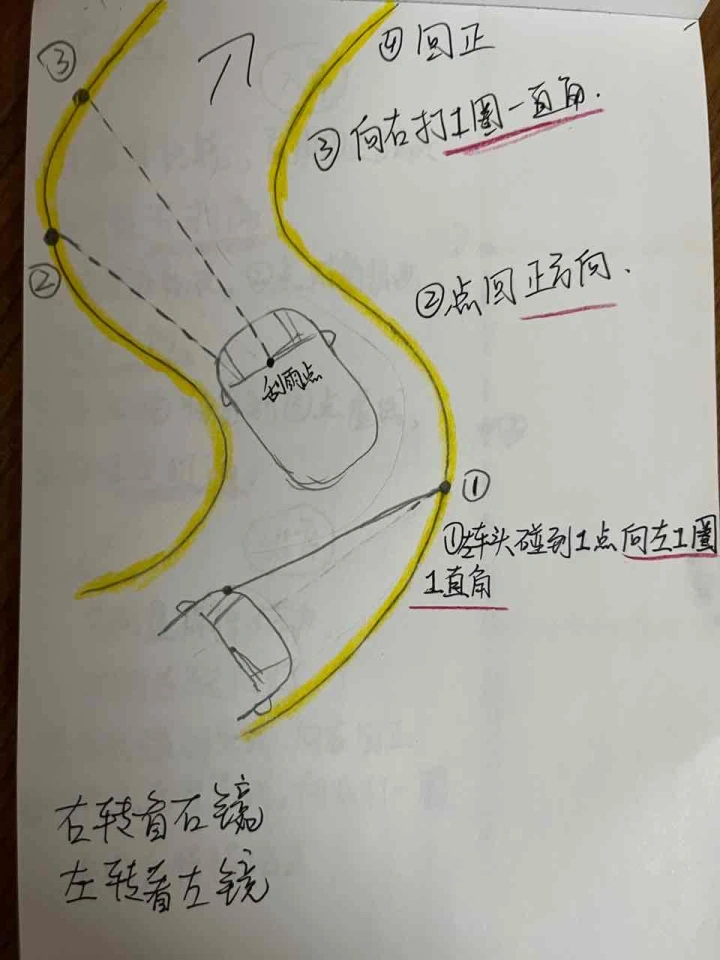 ③
④回正
③向右打1圈一直角.
②
②点回正方向.
刮雨点
①
①左车头碰到1点向左1圈
1直角
右转看右镜
左转看左镜